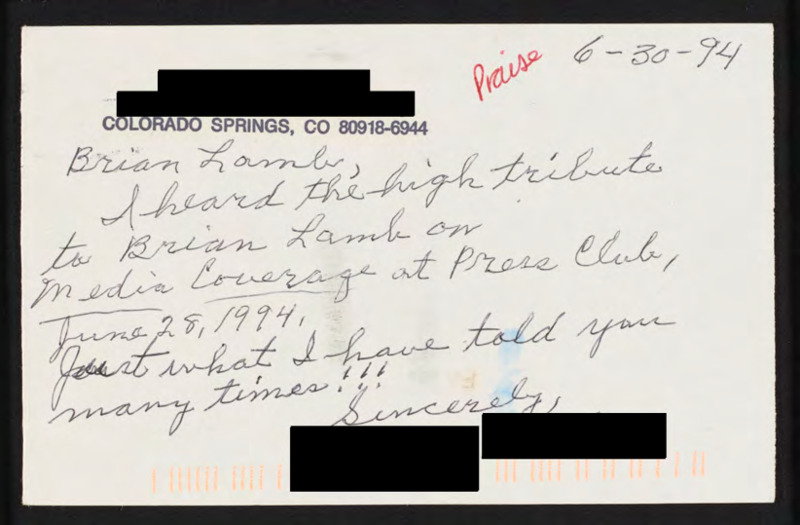 Praise 6-30-94
COLORADO SPRINGS, CO 80918-6944
Brian Lamb,
I heard the high tribute
to Brian Lamb on
Media Coverage at Press Club,
June 28, 1994.
Just what I have told you
many times!!!
Sincerely,